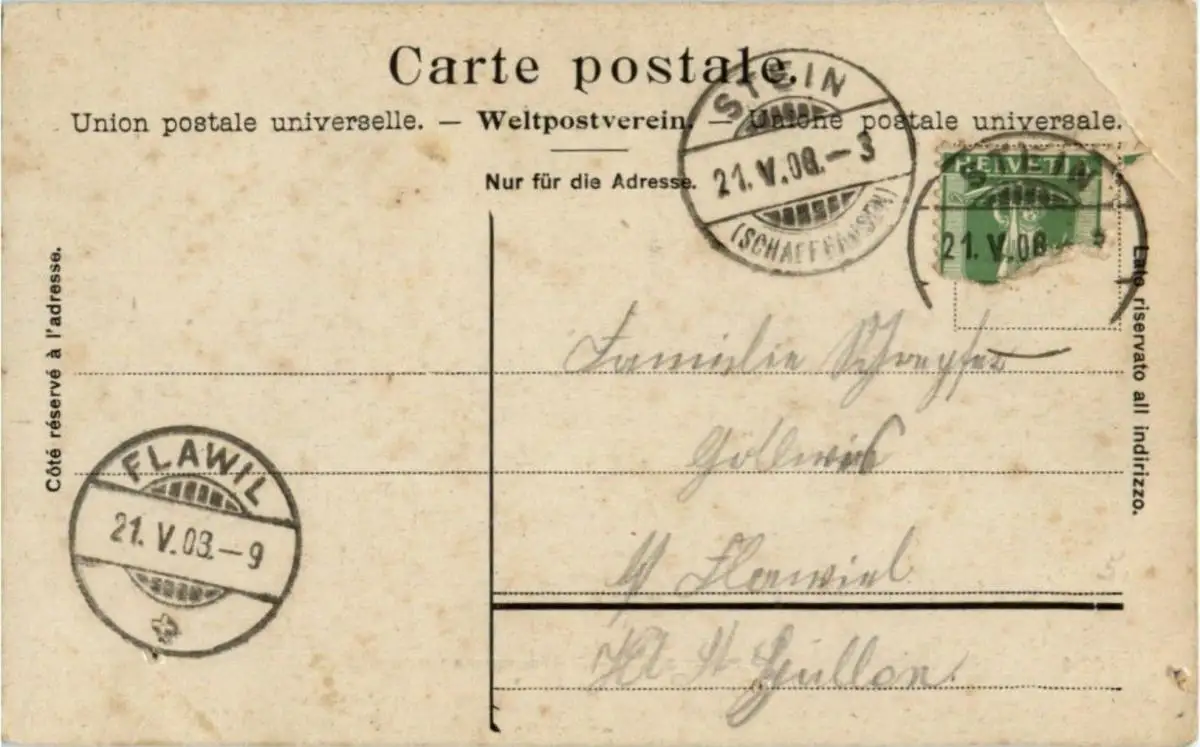 Carte postale.
Union postale universelle. — Weltpostverein. — Unione postale universale.
Nur für die Adresse.
Côté réservé à l'adresse.
Lato riservato all indirizzo.
STEIN
21. V. 08. – 3
(SCHAFFHAUSEN)
HELVETIA
STEIN
21. V. 08.
FLAWIL
21. V. 08. – 9
Familie Schrepfer
b/ Flawiel
Kt St Gallen.